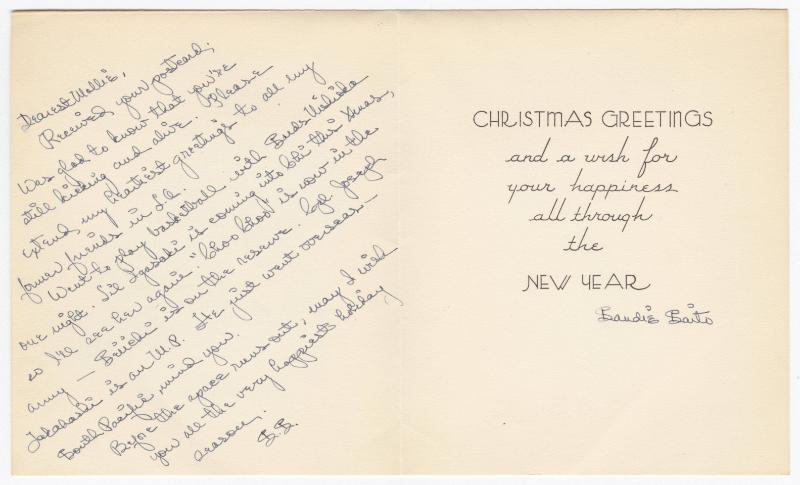 Dearest Mollie,
Received your postcard;
Was glad to know that you're
still kicking and alive. Please
extend my heartiest greetings to all my
former friends in L.A.
Went to play basketball with Buds Nishioka
one night. Lil Igasaki is coming into Chi this Xmas,
so I'll see her again. "Choo Choo" is now in the
army — Beiichi is on the reserve. Cpl. Joseph
Takahashi is an M.P. He just went overseas —
South Pacific, mind you.
Before the space runs out, may I wish
you all the very happiest holiday
season.
S.S.
CHRISTMAS GREETINGS
and a wish for
your happiness
all through
the
NEW YEAR
Saudie Saito